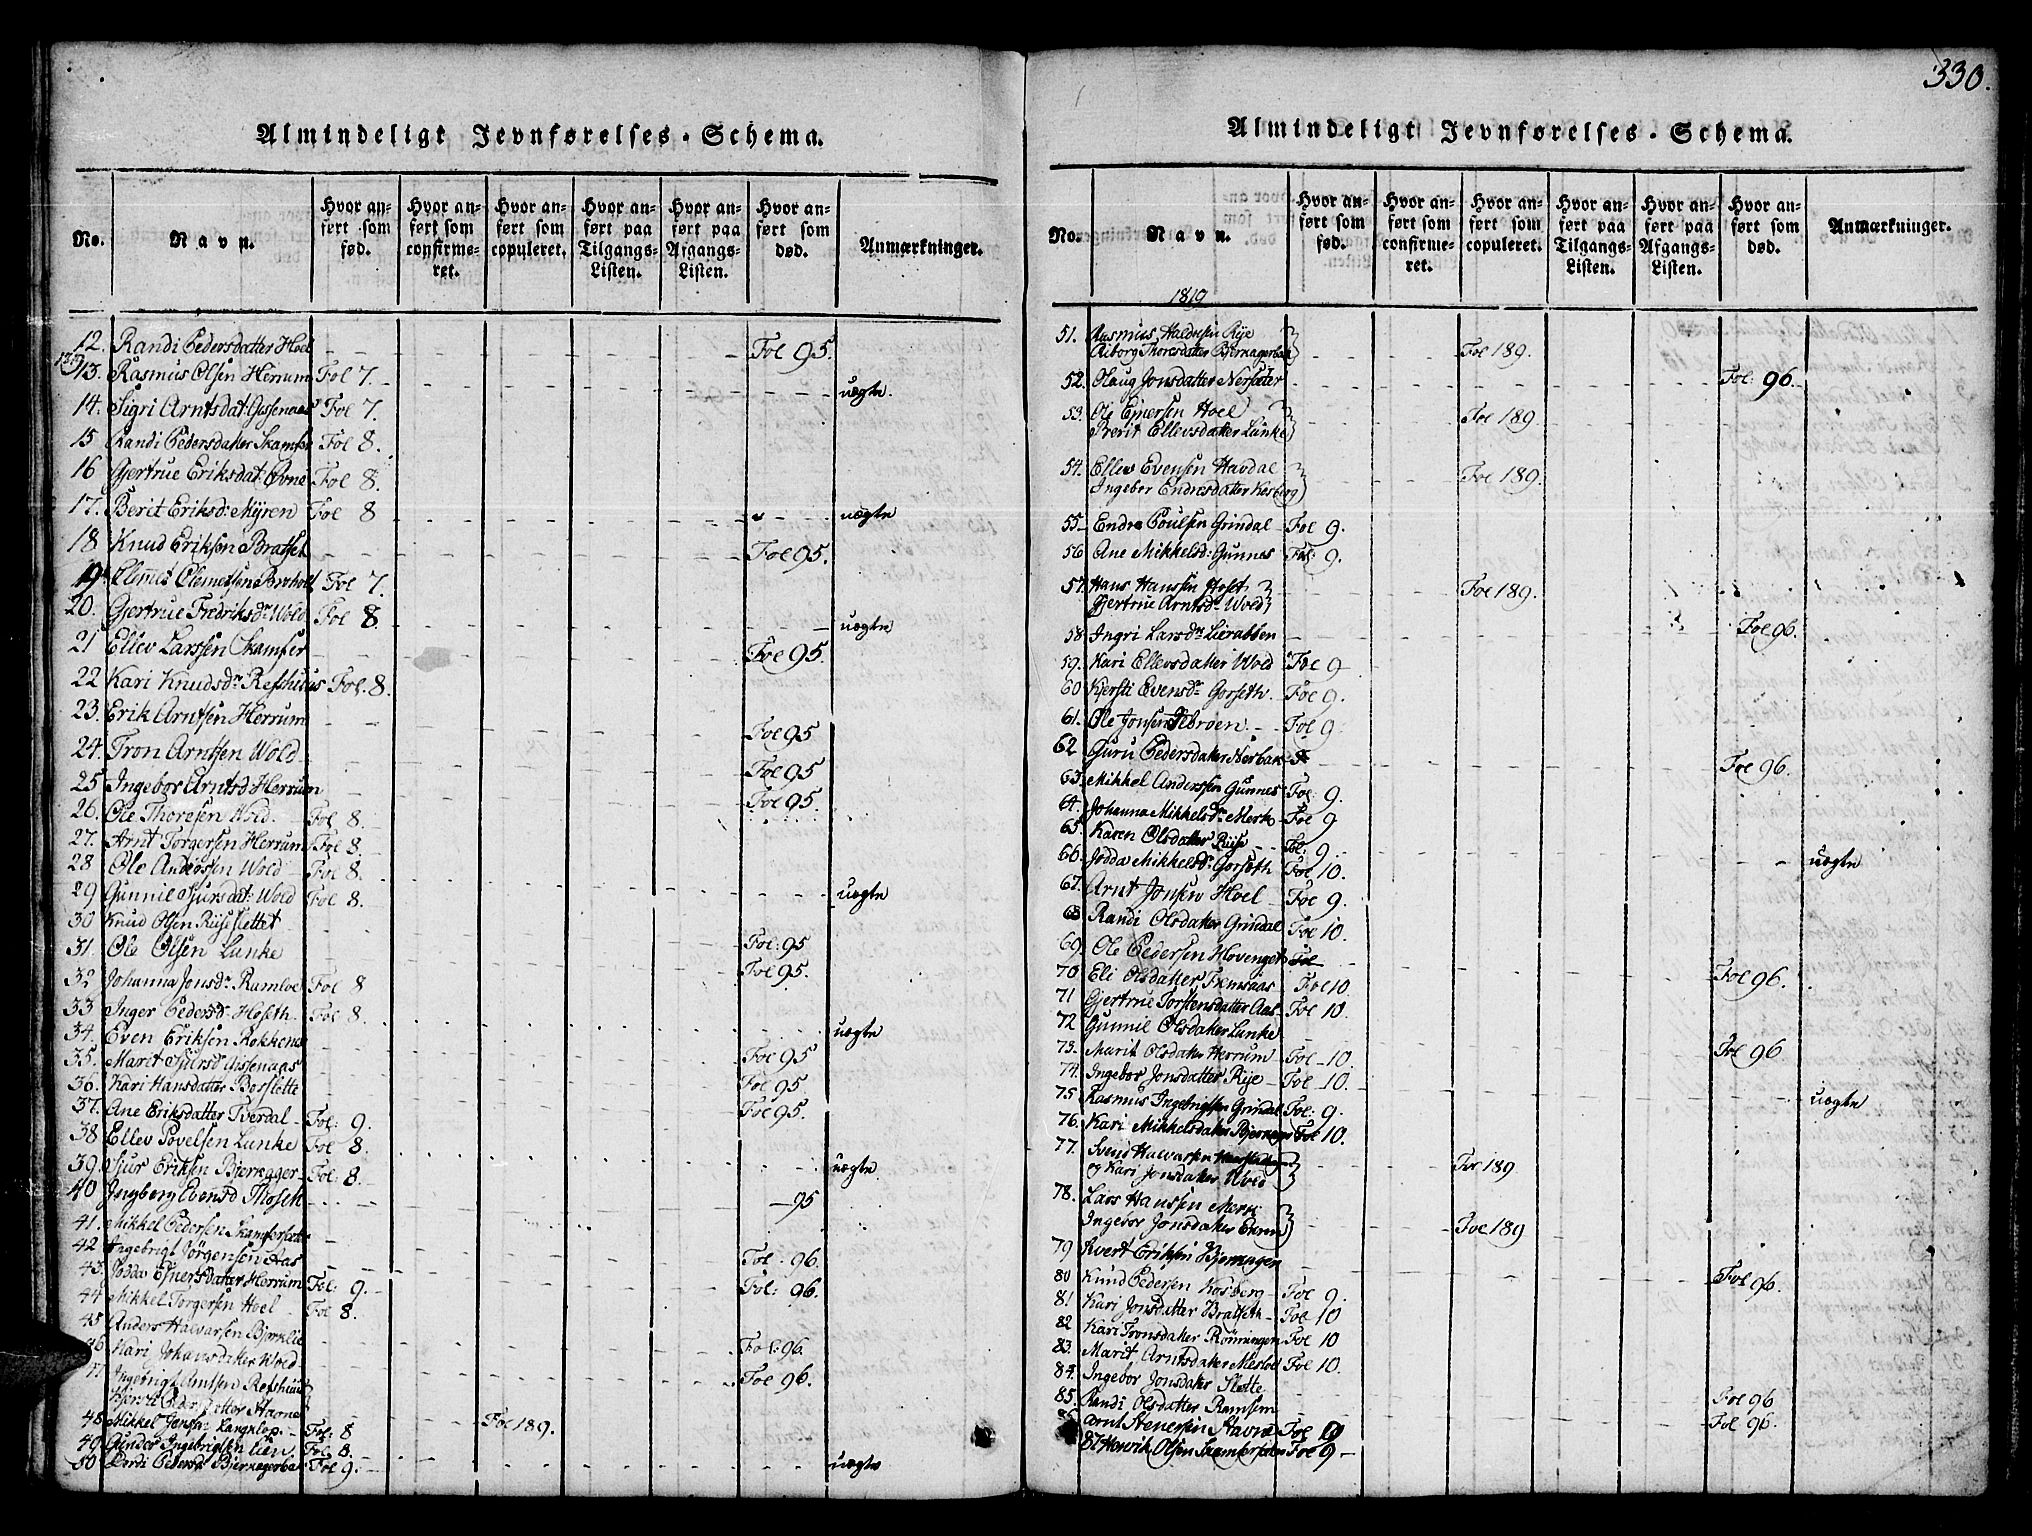 330.
Almindeligt Jevnførelses-Schema.
No. Navn. Hvor anført som født. Hvor anført som confirmeret. Hvor anført som copuleret. Hvor anført paa Tilgangs-Listen. Hvor anført paa Afgangs-Listen. Hvor anført som død. Anmærkninger.
12. Randi Pedersdatter Hoel Fol 95.
1819
13. Rasmus Olsen Herrum Fol 7. uægte.
14. Sigri Arntsdat: Gissenaas Fol 7.
15 Randi Pedersdatter Skamfer Fol 8.
16 Gjertrue Eriksdat: Øvne Fol 8.
17. Berit Eriksd: Myren Fol 8 uægte
18 Knud Eriksen Bratset Fol 95.
19. Clemet Clemetsen Fol 7.
20. Gjertrue Fredriksdr Wold Fol 8. uægte
21 Ellev Larssen Skamfer Fol 95.
22 Kari Knudsdr Refshuus Fol. 8.
23. Erik Arntsen Herrum Fol 95
24. Tron Arntsen Wold Fol 95
25 Ingebor Arntsd Herrum Fol 95.
26. Ole Thoresen Wold. Fol 8.
27. Arnt Torgersen Herrum Fol 8.
28 Ole Anderssen Wold Fol 8.
29 Gunnil Sjursdat: Wold Fol 8. uægte
30 Knud Olsen Riiseslettet Fol: 95
31. Ole Olsen Lunke Fol 95.
32 Johanna Jonsdr Ramloe Fol 8
33 Inger Pedersdr Hoseth. Fol 8. uægte
34. Even Eriksen Rokkenes Fol 95
35. Marit Sjursd Gissenaas Fol 95
36. Kari Hansdatter Boslette Fol 95.
37. Ane Eriksdatter Tverdal Fol: 9.
38 Ellev Povelsen Lunke Fol 8.
39. Sjur Eriksen Bjerkager Fol 8. uægte.
40 Jngberg Evensd Moseh 95
41. Mikkel Pedersen Skamfersætter
42 Ingebrigt Jörgensen Aas Fol. 96.
43. Jodda Ejnersdatter Herrum Fol: 9. Fol: 96.
44 Mikkel Torgersen Hoel Fol 8.
45 Anders Halvarsen Bjørklie
46 Kari Johansdatter Wold Fol: 96.
47 Ingebrigt Arntsen Refshuus Fol 96.
Kjersti Pedersdatter Haarne
48. Mikkel Jonsen Langklep Fol: 8 Fol 189.
49 Gunder Ingebrigtsen Lien. Fol: 8.
50 Dordi Pedersdr Bjerkagerbak Fol 9. uægte
Almindeligt Jevnførelses-Schema.
No. Navn. Hvor anført som fød. Hvor anført som confirmeret. Hvor anført som copuleret. Hvor anført paa Tilgangs-Listen. Hvor anført paa Afgangs-Listen. Hvor anført som død. Anmærkninger.
1819
51. Rasmus Haldosen Rije
Aiborg Thoresdatter Bjerkagerbak Fol 189.
52. Olaug Jonsdatter Nersæter Fol: 96.
53. Ole Ejnersen Hoel
Berit Ellevsdatter Lunke Fol 189.
54. Ellev Evensen Havdal
Ingebor Endresdatter Kosberg Fol 189.
55 Endre Poulsen Grindal Fol 9.
56 Ane Mikkelsd: Gunnes Fol: 9.
57. Hans Hanssen Holst
Gjertrue Arntsdr Wold Fol 189.
58. Ingri Larsdr Lierabben Fol 96.
59. Kari Ellevsdatter Wold Fol 9
60 Kjersti Evensdr Gorseth. Fol 9.
61. Ole Jonsen Ilbroen Fol 9
62 Guru Pedersdatter Nerbak Fol 96.
63. Mikkel Anderssen Gunnes Fol. 9.
64. Johanna Mikkelsdr Merk Fol 9
65. Karen Olsdatter Riise Fol: 9
66. Jodda Mikkelsdr Gorseth Fol 10. uægte
67. Arnt Jonsen Hoel Fol 9.
68 Randi Olsdatter Grindal Fol 10.
69. Ole Pedersen Hovenget Fol
70 Eli Olsdatter Fremsaas Fol 10 Fol 96.
71 Gjertrue Torstensdatter Aas Fol 10.
72 Gunnil Olsdatter Lunke Fol 96
73. Marit Olsdatter Herrum Fol 10.
74. Ingebor Jonsdatter Rije Fol 10.
75 Rasmus Ingebrigtsen Grindal Fol: 9. uægte
76. Kari Mikkelsdatter Bjerkager Fol 10.
77. Svend Halvarsen
og Kari Jonsdatter Wold Fol 189
78. Lars Hanssen Merk
Ingebor Jonsdatter Fol 189
79 Kvert Eriksen Bjerkagen Fol 96.
80 Knud Pedersen Kosberg Fol 9.
81. Kari Jonsdatter Bratseth Fol 10
82 Kari Tronsdatter Rönningen Fol 10
83. Marit Arntsdatter Mesloe Fol 10.
84. Ingebor Jonsdatter Slette Fol 96
85. Randi Olsdatter Ramsem Fol 96.
Arnt Stenersen Havne Fol 10
87 Henrik Olsen Skamfersæter Fol 9